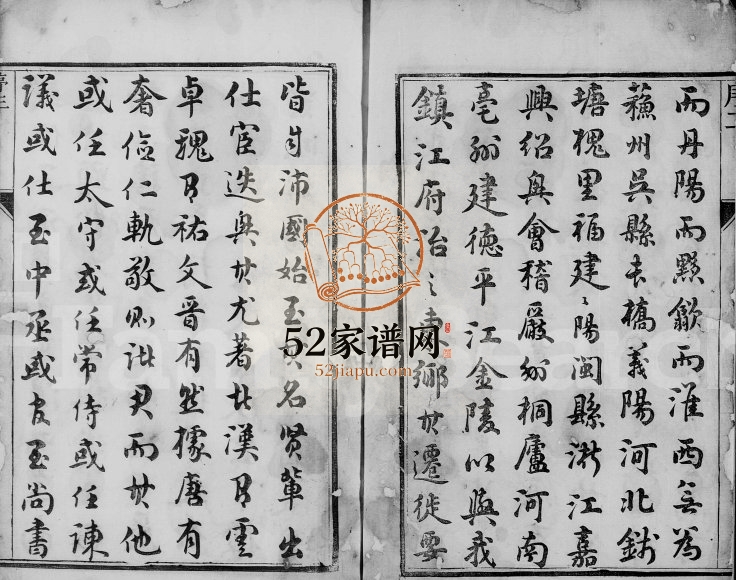 序二
而丹陽而黟歙而淮西無為
蘓州吳縣長橋義陽河北錢
塘槐里福建建陽閩縣浙江嘉
興紹興會稽嚴州桐廬河南
亳州建德平江金陵以與我
鎮江府治之 鄉其遷徙要
皆自沛國始至 名賢輩出
仕宦迭興其尤著者漢有雲
卓魏有祐文晋有然據唐有
奢儉仁軌敬則諸君而其他
或任太守或任常侍或任諫
議或仕至中丞或官至尚書
52家谱网
52jiapu.com